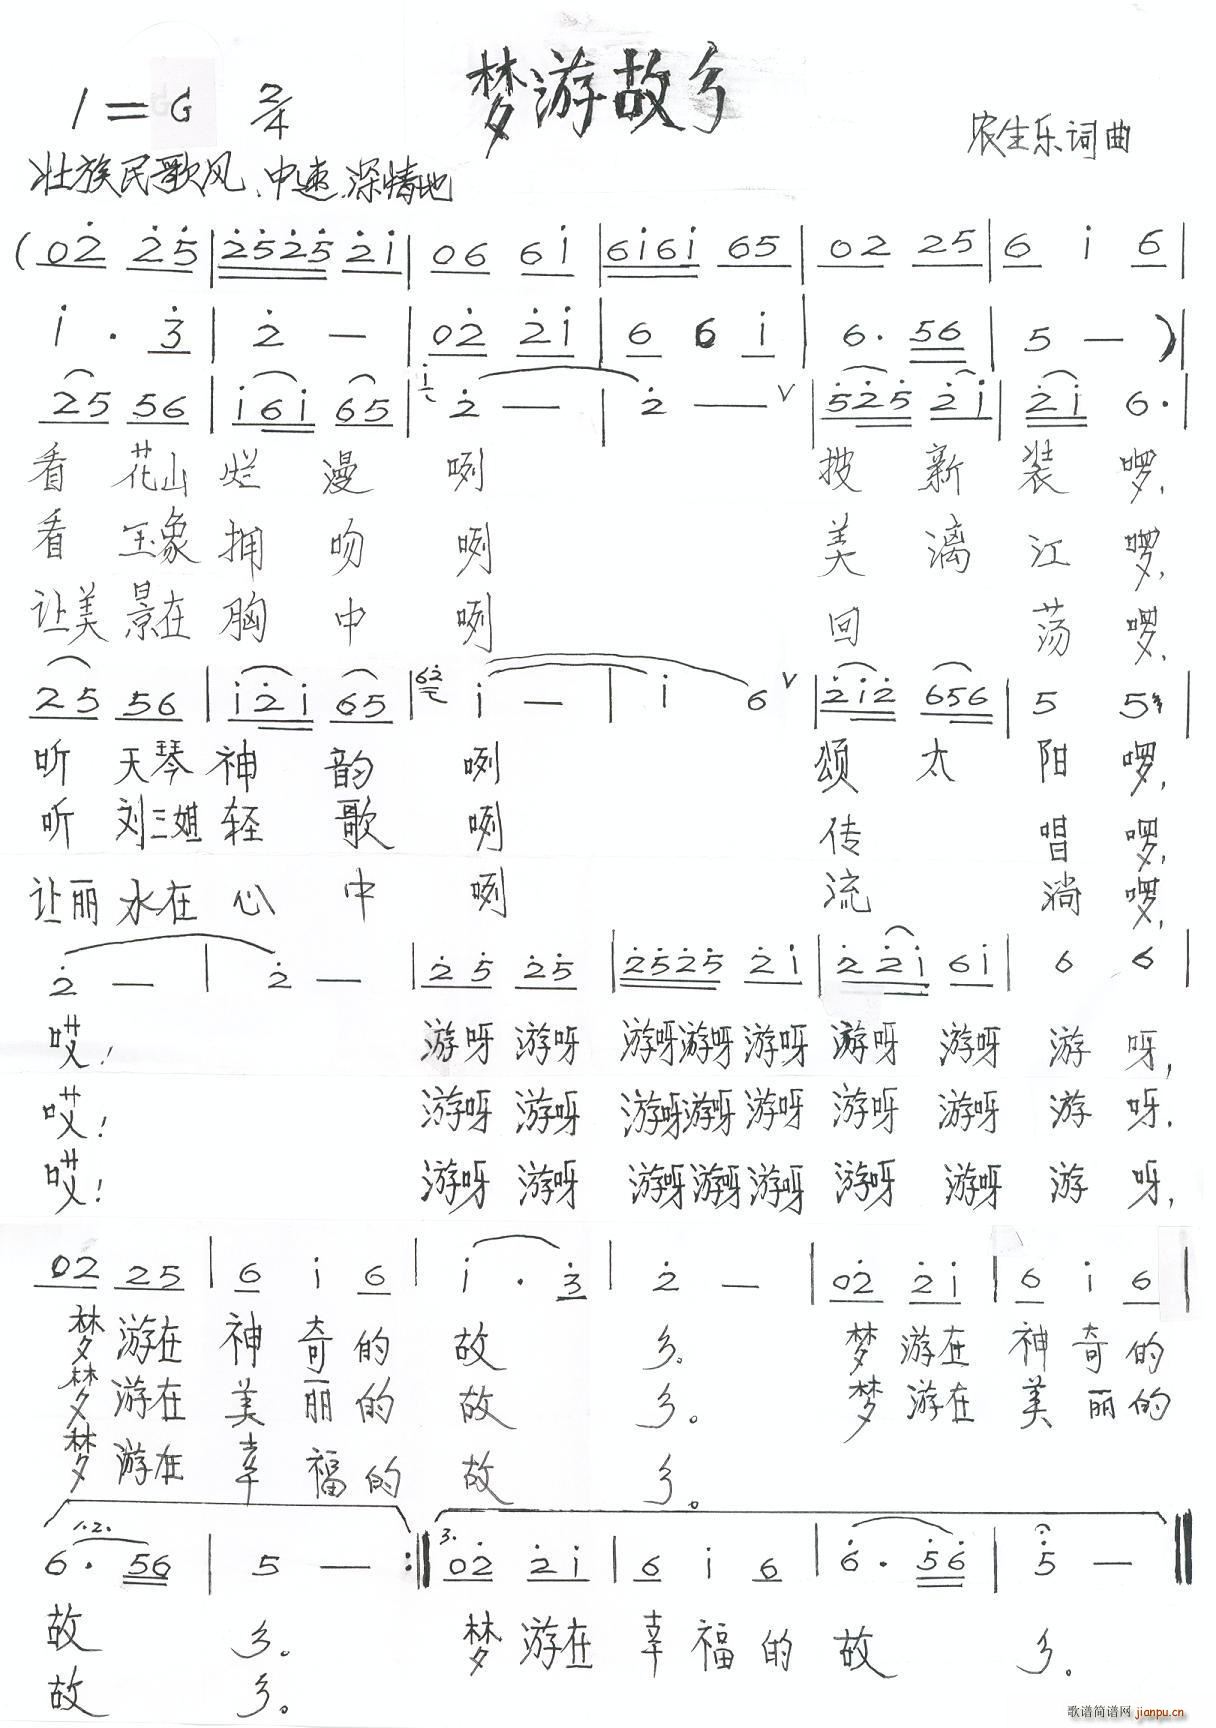 梦游故乡
1=G 2/4
农生乐词曲
壮族民歌风、中速、深情地
(02̇ 2̇5̇ | 2̇5̇2̇5̇ 2̇i | 06 6i | 6i6i 65 | 02 25 | 6 i 6 |
i · 3̇ | 2̇ — | 02̇ 2̇i | 6 6 i | 6· 56 | 5 — )|
25 56 | i6i 65 | 2̇ — | 2̇ — V | 5̇2̇5̇ 2̇i | 2̇i 6· |
看 花山 烂 漫 咧 披 新 装 啰,
看 玉象 拥 吻 咧 美 漓 江 啰,
让美 景在 胸 中 咧 回 荡 啰,
25 56 | i2̇i 65 | 62̇ i — | i 6 V | 2̇i2̇ 656 | 5 5 |
听 天琴 神 韵 咧 颂 太 阳 啰,
听 刘三姐 轻 歌 咧 传 唱 啰,
让丽 水在 心 中 咧 流 淌 啰,
2̇ — | 2̇ — | 2̇5̇ 2̇5̇ | 2̇5̇2̇5̇ 2̇i | 2̇2̇i 6i | 6 6 |
哎! 游呀 游呀 游呀游呀 游呀 游呀 游呀 游 呀,
哎! 游呀 游呀 游呀游呀 游呀 游呀 游呀 游 呀,
哎! 游呀 游呀 游呀游呀 游呀 游呀 游呀 游 呀,
02 25 | 6 i 6 | i · 3̇ | 2̇ — | 02̇ 2̇i | 6 i 6 |
梦 游在 神 奇 的 故 乡。 梦 游在 神 奇 的
梦 游在 美 丽 的 故 乡。 梦 游在 美 丽 的
梦 游在 幸 福 的 故 乡。
1.2. 6· 56 | 5 — :‖ 3. 02̇ 2̇i | 6 i 6 | 6̇· 5̇6̇ | 5̇ — ‖
故 乡。 梦 游在 幸 福 的 故 乡。
故 乡。
歌谱简谱网 jianpu.cn